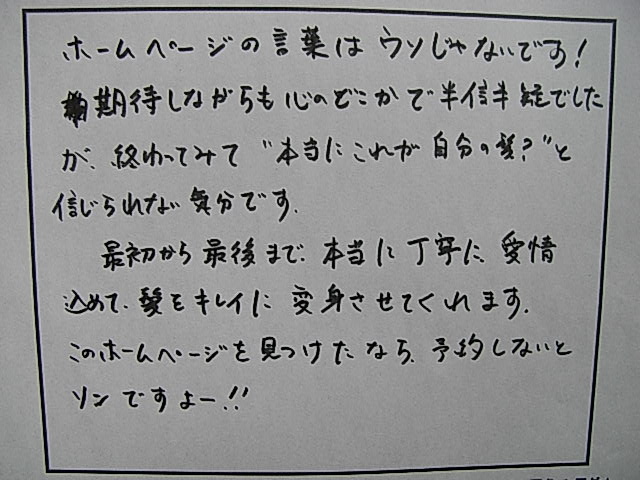 ホームページの言葉はウソじゃないです！
期待しながらも心のどこかで半信半疑でした
が、終わってみて“本当にこれが自分の髪？”と
信じられない気分です。
最初から最後まで、本当に丁寧に、愛情
込めて、髪をキレイに変身させてくれます。
このホームページを見つけたなら、予約しないと
ソンですよー!!